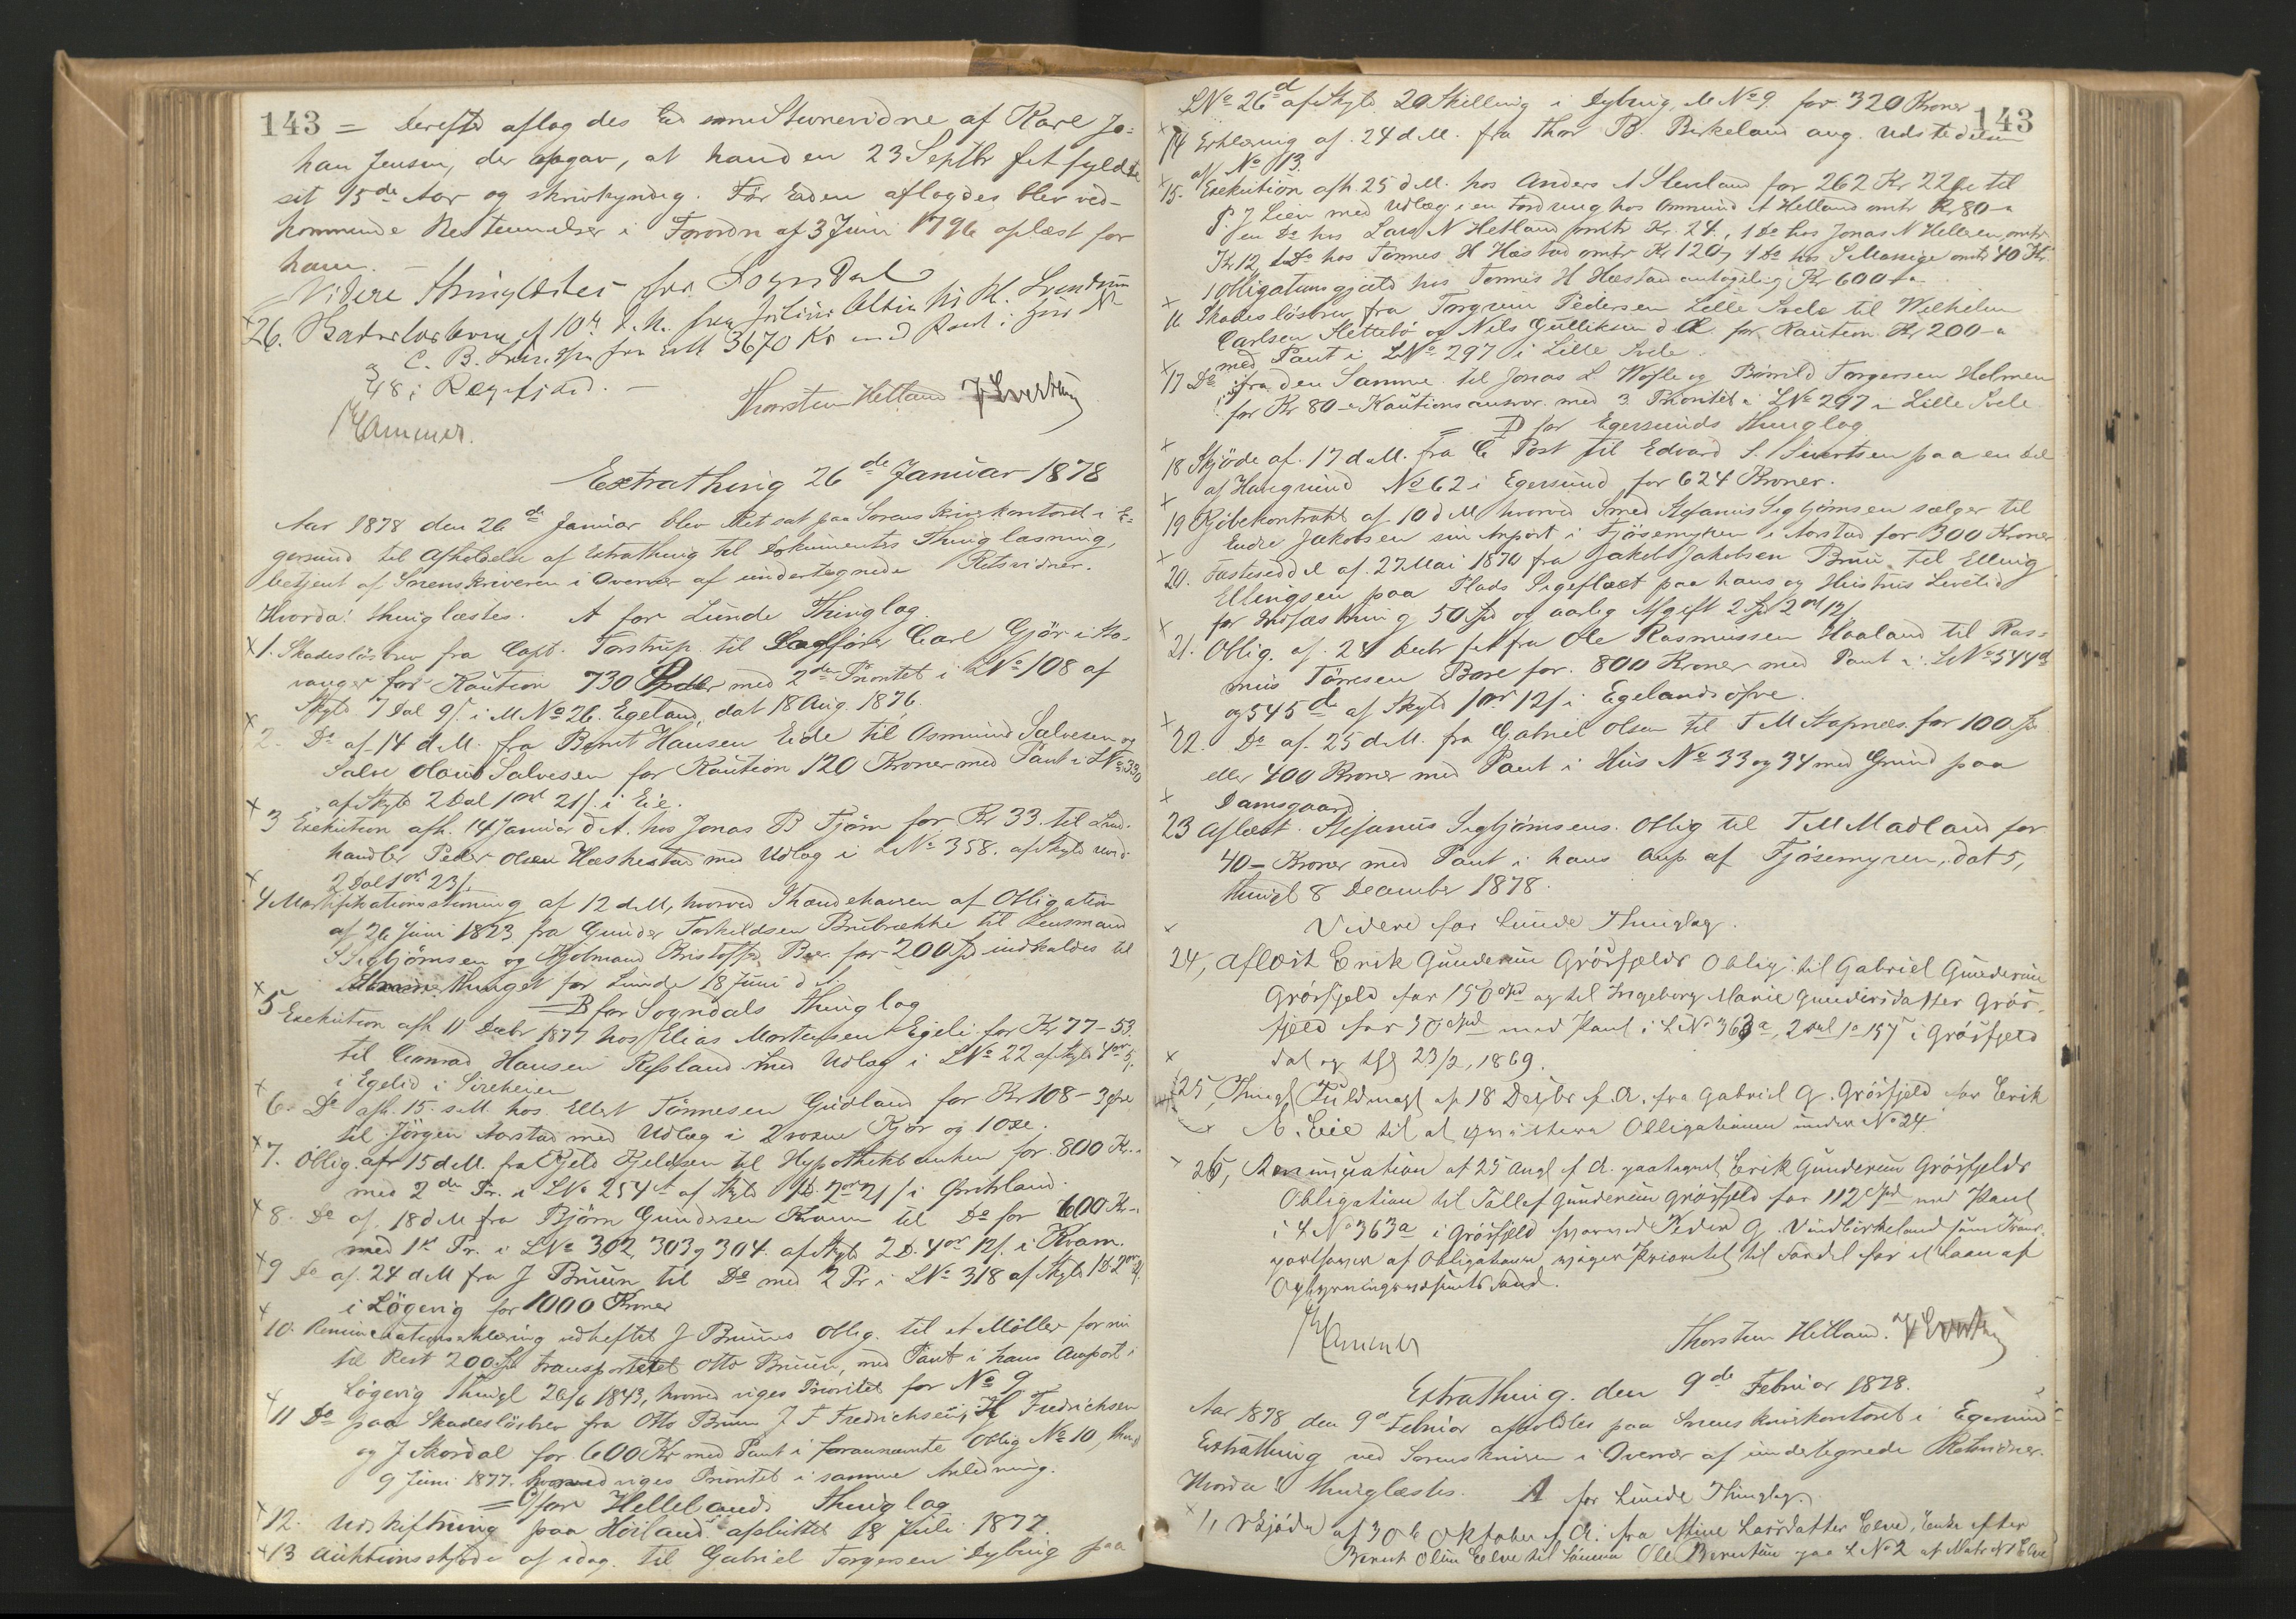 143 = Derefter aflagdes Ed som Stevnevidne af Karl Jo-
han Jensen, der opgav, at han den 23 Septbr f.A. fyldte
sit 15de Aar og skrivkyndig. Før Eden aflagdes blev ved-
kommende Bestemmelser i Forordn af 3 Juni 1796 oplæst for
ham. —
Videre thinglæstes for Sogndal
26. af 10de d. M. fra Julius til H.
C. B. for 3670 Kr med Pant i Huus No
48 i Rægefjord. —
Hammer. Thorsten Hetland
Extrathing 26de Januar 1878
Aar 1878 den 26de Januar blev Ret sat paa Sorenskriverkontoret i E-
gersund til Afholdelse af Extrathing til Dokumenters Thinglæsning,
betjent af Sorenskriveren i Overvær af undertegnede Retsvidner.
Hvorda: thinglæstes. A for Lunde Thinglag.
1. Skadesløsbrev fra Capt. Torstrup til Carl Gjør i Sta-
vanger for Kaution 730 Spdlr med 2den Prioritet i LNo 108 af
Skyld 7 Dal 9 s. i MNo 26. Egeland, dat 18 Aug. 1876.
2. Do af 14 d.M. fra Bernt Hansen Eide til Osmund Salvesen og
Salve Olaus Salvesen for Kaution 120 Kroner med Pant i LNo 330
af Skyld 2 Dal 1 ort 21 s. i Eie.
3 Exekution afh. 14 Januar d.A. hos Jonas B Tjørn for Kr 33. til Land-
handler Peder Olsen Hæskestad med Udlæg i LNo 358. af Skyld
2 Dal 1 ort 23 s.
4 Mortifikationsstevning af 12 d.M, hvorved Ihændehaveren af Obligation
af 26 Juni 1823 fra Gunder Torkildsen Brubrække til Lensmand
S Sigbjørnsen og Kjøbmand Boer for 200 Spd indkaldes til
Thinget for Lunde 18 Juni d.A.
= B for Sogndals Thinglag
5 Exekution afh 11 Decbr 1877 hos Elias Mortensen Egeli for Kr 77-53.
til Conrad Hansen Refsland med Udlæg i LNo 22 af Skyld 4 ort 5 s.
i Egelid i Sireheien
6. Do afh. 15. d.M. hos Ellert Tønnesen Gudland for Kr 108-3 øre
til Jørgen Aarstad med Udlæg i 2 voxne Kjør og 1 Oxe.
7. Oblig. af 15 d.M. fra Kjeld Kjeldsen til Hypothekbanken for 800 Kr.
med 2den Pr. i LNo 254 af Skyld 1 D. 2 ort 21 s i
8. Do af 18 d.M fra Bjørn Gundersen Kvam til Do for 600 Kr.
med 1ste Pr. i LNo 302, 303 og 304 af Skyld 2 D. 4 ort 12 s. i Kvam.
9 Do af 24 d M fra J Bruun til Do med 2 Pr i LNo 318 af Skyld 1 D 2 ort
i Løgevig for 1000 Kroner
10. Renunciationserklæring vedheftet J Bruuns Oblig. til Møller for nu
til Rest 200 Spd transporteret Otto Bruun, med Pant i hans Anpart i
Løgevig thingl 26/6 1843, hvorved viges Prioritet for No 9
11 Do paa Skadesløsbrev fra Otto Bruun J F Fredrichsen, H Fredrichsen
og J Skordal for 600 Kr med Pant i forannævnte Oblig No 10,
9 Juni 1877. hvorved viges Prioritet i samme Anledning.
= C for Hellelands Thinglag
12. Udskiftning paa Høiland afsluttet 18 Juli 1877.
13 Auktionsskjøde af idag. til Gabriel Torgersen Dybing paa
LNo 26d af Skyld 20 Skilling i Dybing, MNo 9. for 320 Kroner 143
14 Erklæring af. 24 d M. fra Thor B. Birkeland ang. Udstedelsen
af No 13.
15. Exekution afh 25 d M. hos Anders A Slevland for 262 Kr 22 øre til
P. J Lien med Udlæg i en Fordring hos Ommund A Helland omtr Kr 80-
en Do hos Lars N Hetland omtr Kr. 24, 1 Do hos Jonas N Hellren omtr
Kr 12, 1 Do hos Tønnes H Hæstad omtr Kr 120, 1 Do hos S Massige omtr 40 Kr.
1 Obligationsgjæld hos Tønnes H Hæstad antagelig Kr 600
16 Skadesløsbrev fra Torgrim Pedersen Lille Svele til Wilhelm
Carlsen Slettebø og Nils Gulliksen for Kaution Kr 200-
med Pant i LNo 297 i Lille Svele.
17 Do fra den Samme til Jonas L og Torgersen Holmen
for Kr 80- Kautionsansvar med 3. Prioritet i LNo 297 i Lille Svele
= D for Egersunds Thinglag
18 Skjøde af. 17 d M. fra C Post til Edvard S. Sivertsen paa en Del
af Havegrund No 62 i Egersund for 624 Kroner.
19 Kjøbekontrakt af 10 d M hvorved Smed Stefanus Sigbjørnsen sælger til
Endre Jakobsen sin Anpart i Fjøsemyren i Aarstad for 300 Kroner
20. Fæsteseddel af 27 Mai 1870 fra Jakob Jakobsen Bruu til Elling
Ellingsen paa Plads paa hans og Hustrus Levetid
for Indfæstning 50 Spd og aarlig Afgift 2 Spd 2 ort 12 s
21. Oblig. af 28 Decbr f.A. fra Ole Rasmussen Haaland til Ras-
mus Tørresen Bore for. 800 Kroner med Pant i LNo 544
og 545 af Skyld 1 ort 12 s i Egelandsøfre.
22. Do af. 25 d.M. fra Gabriel Olsen til T M Stapnæs for 100 Spd
eller 400 Kroner med Pant i Hus No 33 og 34 med Grund paa
Damsgaard
23 Aflæst. Stefanus Sigbjørnsens. Oblig til T M Madland for
40- Kroner med Pant i hans Anp. af Fjøsemyren, dat 5,
thingl 8 December 1878.
Videre for Lunde Thinglag.
24, Aflæst Erik Gundersen Grøsfjelds Oblig: til Gabriel Gundersen
Grøsfjeld for 150 Spd og til Ingeborg Marie Gundersdatter Grøs-
fjeld for 50 Spd med Pant i LNo 363a, 2 Dal 1 o 15 s i Grøsfjeld
dat og thgl 23/2, 1869.
25, Thingl. Fuldmagt af 18 Decbr f. A. fra Gabriel G. Grøsfjeld for Erik
N. Eie til at qvittere Obligationen under No 24.
26, Renunciation af 25 Augt f. A. paategnet Erik Gundersen Grøsfjelds
Obligation til Tollef Gundersen Grøsfjeld for 112 Spd med Pant
i LNo 363a i Grøsfjeld hvorved Peder G. Vindbirkeland som Trans-
porthaver af Obligationen viger Prioritet til Fordel for et Laan af
Oplysningsvæsenets Fond.
Hammer Thorsten Hetland.
Extrathing. den 9de Februar 1878.
Aar 1878 den 9de Februar afholdtes paa Sorenskriverkontoret i Egersund
Extrathing ved Sorenskriveren i Overvær af undertegnede Retsvidner.
Hvorda: thinglæstes. A for Lunde Thinglag.
1, Skjøde af 30te Oktober f. A. fra Stine Larsdatter Elve, Enke efter
Bernt Olsen Elve til Sønnen Ole Berntsen paa LNo 2 af Matr No 1 Elve